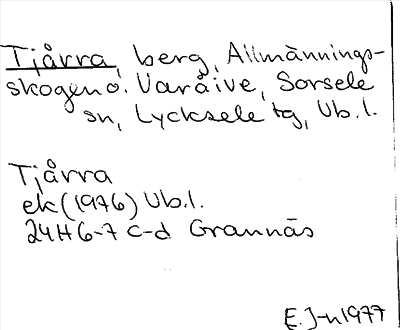 Tjårra, berg, Allmännings-
skogen o. Varåive, Sorsele
sn, Lycksele tg, Vb.l.
Tjårra
ek (1976) Vb.l.
24H 6-7 c-d Grannäs
E. J-n 1977